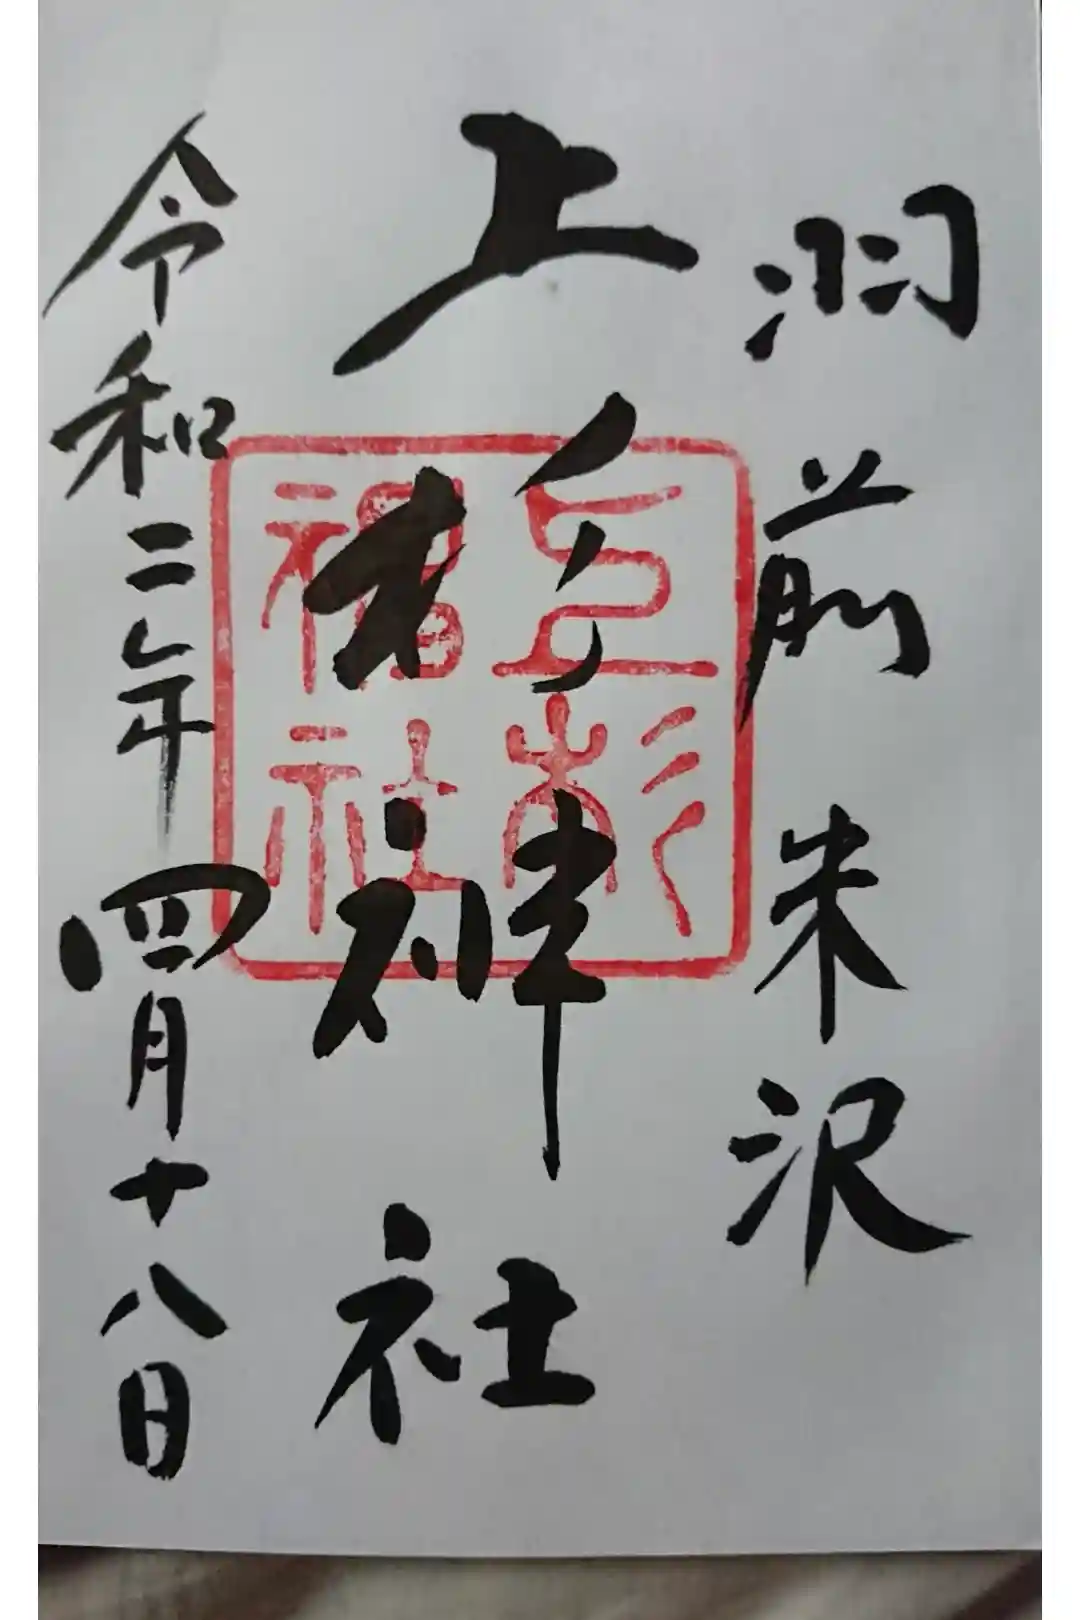 羽前米沢
上杉神社
上杉
神社
令和二年四月十八日